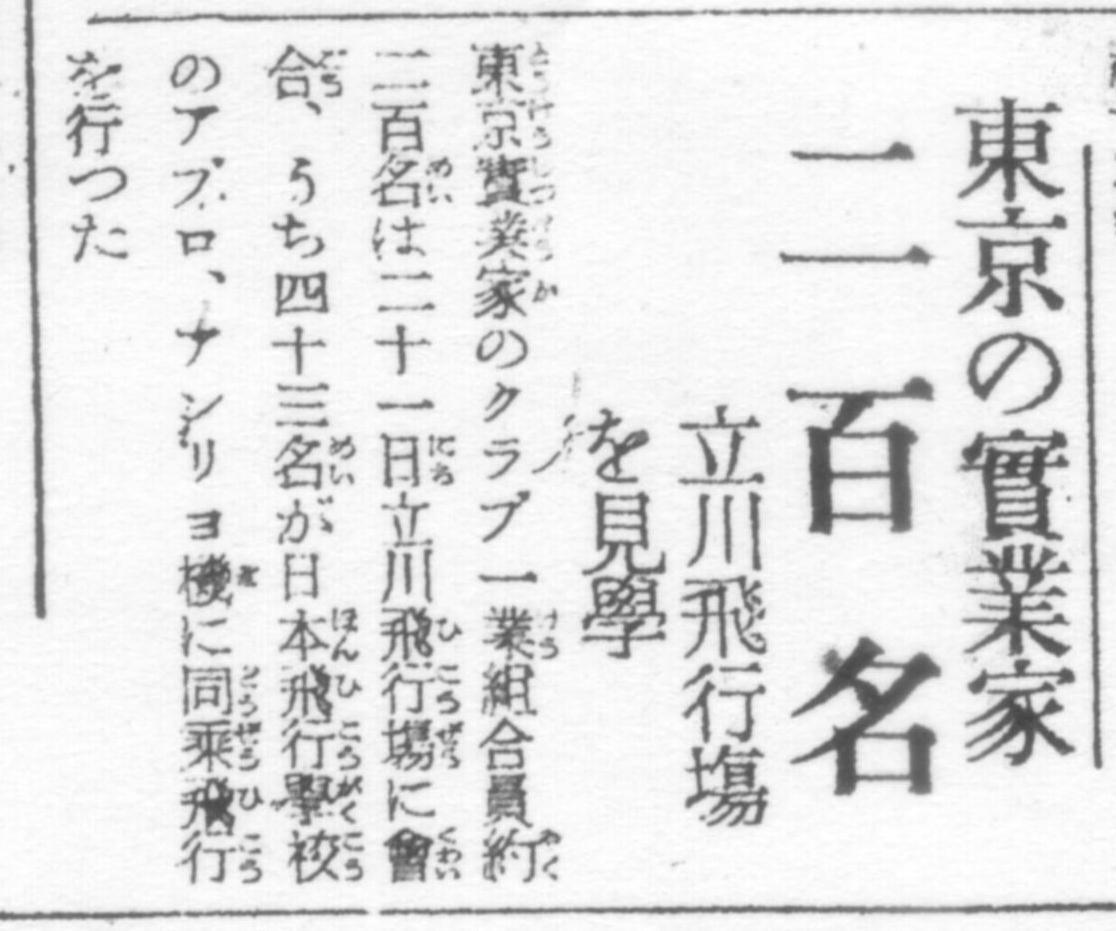 東京の實業家
二百名
立川飛行塲
を見學
東京實業家のクラブ一業組合員約
二百名は二十一日立川飛行塲に會
合、うち四十三名が日本飛行學校
のアブロ、アンリヨ機に同乘飛行
を行つた